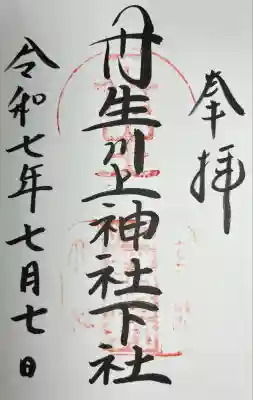 奉拝
丹生川上神社下社
令和七年七月七日